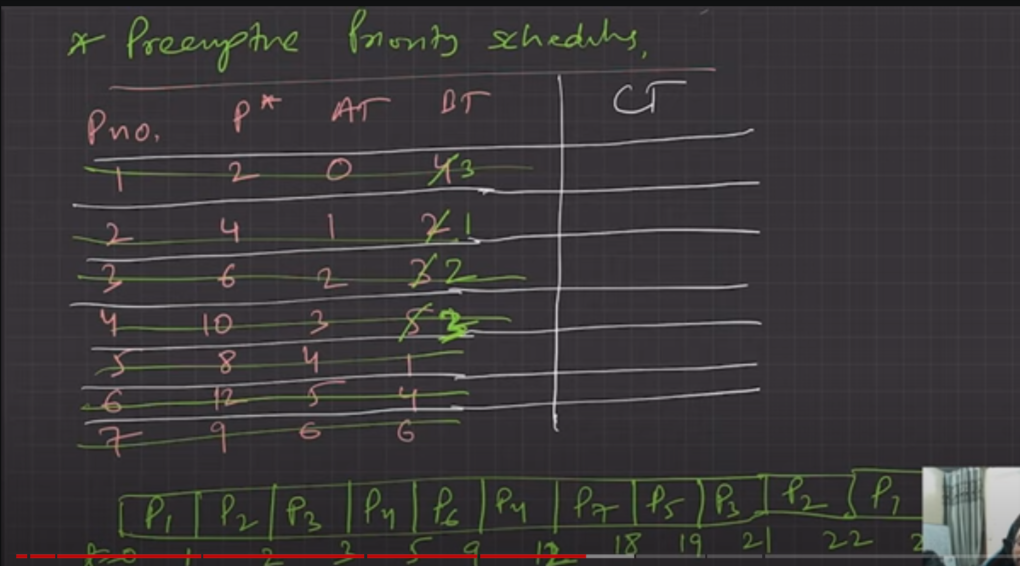 * Preemptive Priority scheduling,
Pno. P* AT BT CT
1 2 0 4 3
2 4 1 2 1
3 6 2 3 2
4 10 3 5 3
5 8 4 1
6 12 5 4
7 9 6 6
P1 P2 P3 P4 P6 P4 P7 P5 P3 P2 P1
0 1 2 3 5 9 12 18 19 21 22